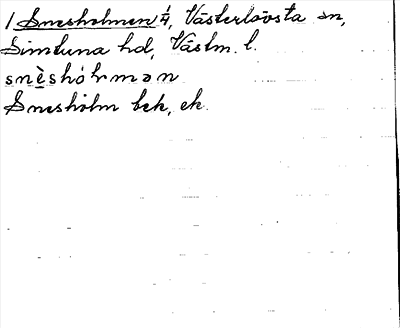 1 Snesholmen 1/4, Västerlövsta sn,
Simtuna hd, Västm. l.
snèshòlmən
Snesholm bek, ek.